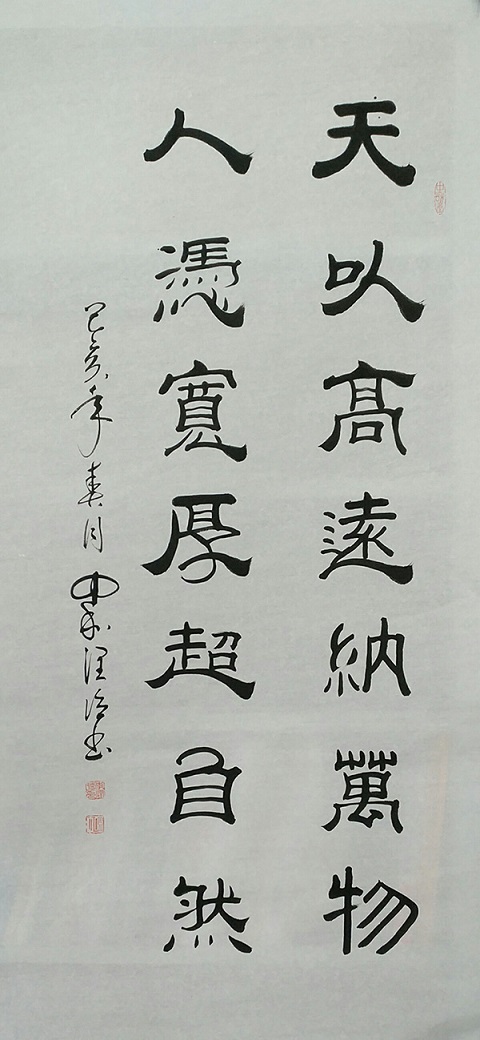 天以高遠納萬物
人憑寬厚超自然
己亥年春月
書